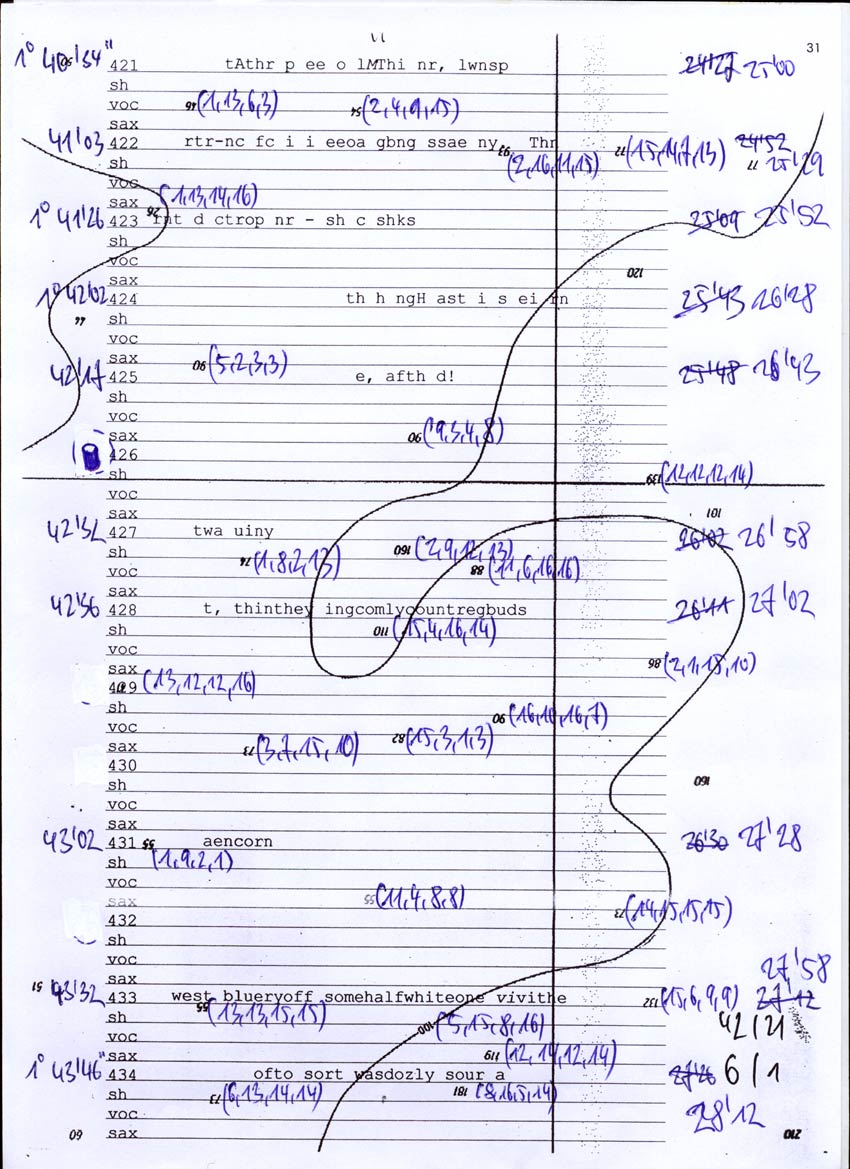 31
1° 40'54" 421 tAthr p ee o lMThi nr, lwnsp 24'27 25'00
sh
voc 46 (1,13,6,3) 54 (2,4,9,15)
sax
41'03 422 rtr-nc fc i i eeoa gbng ssae ny Thr 24'52
sh 93 (2,16,11,15) 77 (15,14,7,13) 77 25'29
voc
sax (1,13,14,16)
1° 41'26 423 26 rnt d ctrop nr - sh c shks 25'09 25'52
sh
voc
sax 120
1° 42'02 424 th h ngH ast i s ei rn 25'43 26'28
44 sh
voc
sax 90 (5,2,3,3)
42'17 425 e, afth d! 25'48 26'43
sh
voc
sax 90 (9,3,4,8)
426
sh 139 (12,12,12,14)
voc
sax 101
42'32 427 twa uiny 26'02 26'58
sh 74 (1,8,2,13) 160 (2,9,12,13)
voc 88 (11,6,16,16)
sax
42'36 428 t, thinthey ingcomlycountregbuds 26'11 27'02
sh 110 (15,4,16,14)
voc
sax 86 (2,1,15,10)
429 (13,12,12,16)
sh 90 (16,10,16,7)
voc
sax 73 (3,7,15,10) 82 (15,3,1,3)
430
sh 160
voc
sax
43'02 431 55 aencorn 26'30 27'28
sh (1,9,2,1)
voc
sax 55 (11,4,8,8)
432 73 (14,15,15,15)
sh
voc
sax 27'58
51 43'32 433 west blueryoff somehalfwhiteone vivithe 132 (15,6,9,9) 27'12
sh 55 (13,13,15,15)
voc 100 (5,15,8,16) 42/21
sax 119 (12,14,12,14)
1° 43'46" 434 ofto sort wasdozly sour a 27'26 6/1
sh 73 (6,13,14,14) 181 (8,16,5,14)
voc 28'12
60 sax 210